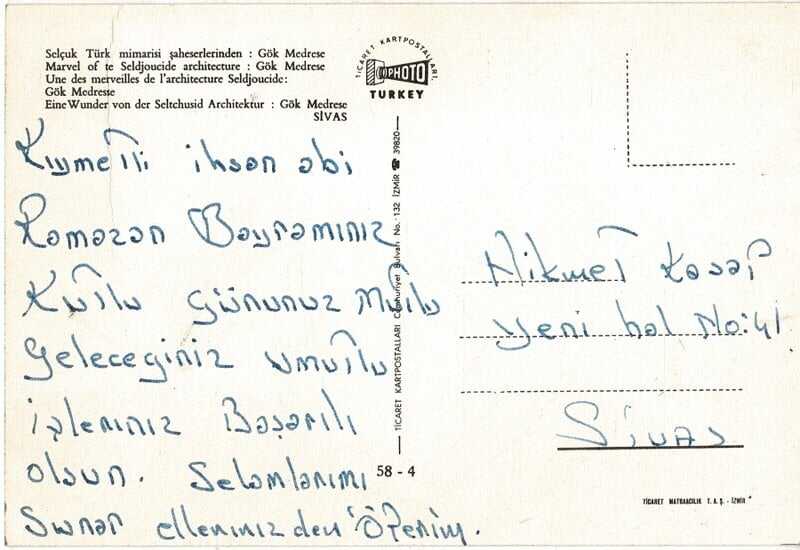 Selçuk Türk mimarisi şaheserlerinden : Gök Medrese
Marvel of te Seldjoucide architecture : Gök Medrese
Une des merveilles de l'architecture Seldjoucide:
Gök Medresse
Eine Wunder von der Seltchusid Architektur : Gök Medrese
SİVAS
TİCARET KARTPOSTALLARI
COPHOTO
TURKEY
Kıymetli ihsan abi
Ramazan Bayramınız
Kutlu gününuz Mutlu
Geleceginiz umutlu
işleriniz Başarılı
olsun. Selamlarımı
Sunar ellerinizden Öperim.
TİCARET KARTPOSTALLARI Cumhuriyet Bulvarı No. 132 İZMİR ☎ 39820
58 - 4
Hikmet
Yeni hal No: 41
Sivas
TİCARET MATBAACILIK T. A. Ş. - İZMİR